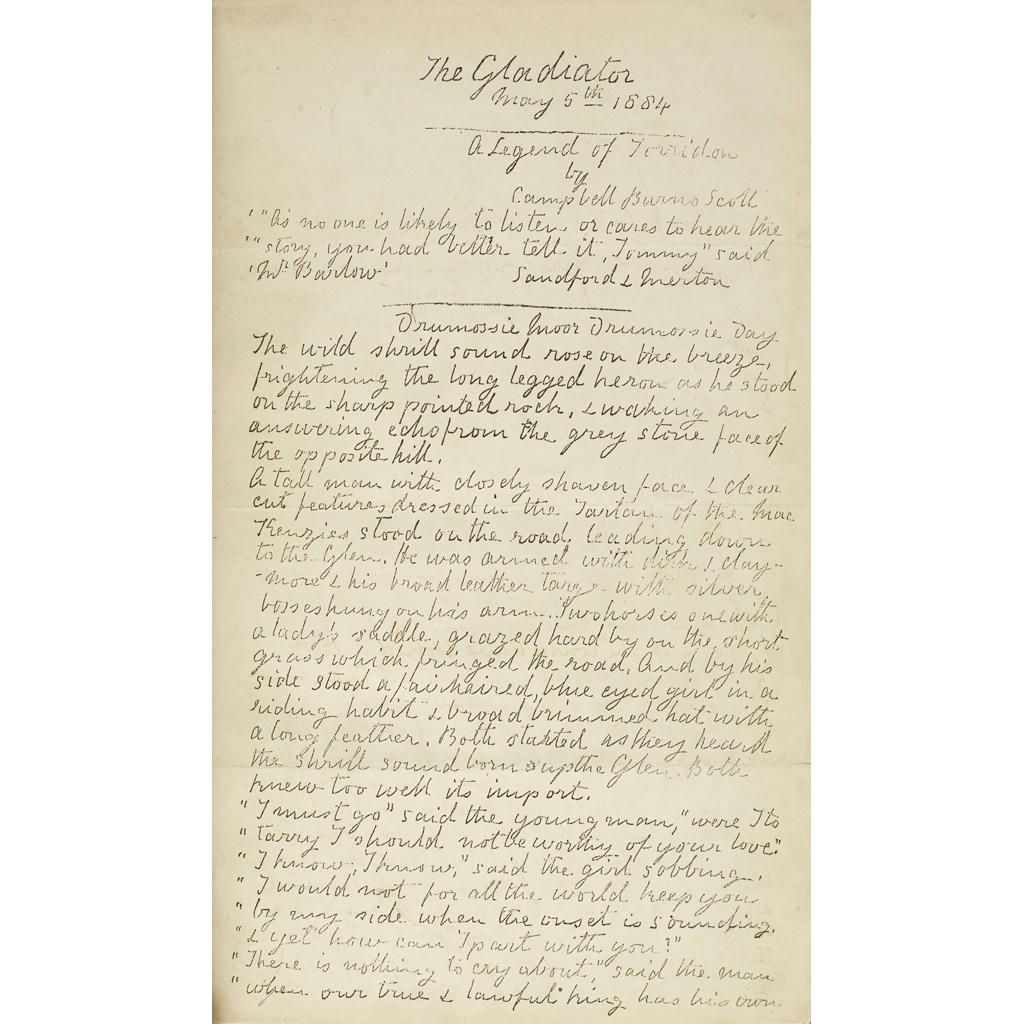 The Gladiator
May 5th 1884
A Legend of Torridon
by
Campbell Burno Scott
'"As no one is likely to listen or cares to hear the
'"story, you had better tell it, Tommy" said
'Mr Barlow' Sandford & Merton
Drumossie Moor Drumossie Day
The wild shrill sound rose on the breeze,
frightening the long legged heron as he stood
on the sharp pointed rock, & waking an
answering echo from the grey stone face of
the opposite hill.
A tall man with closely shaven face & clear
cut features dressed in the Tartan of the Mac
Kenzies stood on the road leading down
to the Glen. He was armed with dirk & clay-
-more & his broad leather targe with silver
bosses hung on his arm. Two horses one with
a lady's saddle, grazed hard by on the short
grass which fringed the road. And by his
side stood a fair haired, blue eyed girl in a
riding habit & broad brimmed hat with
a long feather. Both started as they heard
the shrill sound born up the Glen. Both
knew too well its import.
"I must go" said the young man, "were I to
"tarry I should not be worthy of your love".
"I know, I know," said the girl sobbing.
"I would not for all the world keep you
"by my side when the onset is sounding.
"& yet how can I part with you?"
"There is nothing to cry about," said the man
"when our true & lawful king has his own